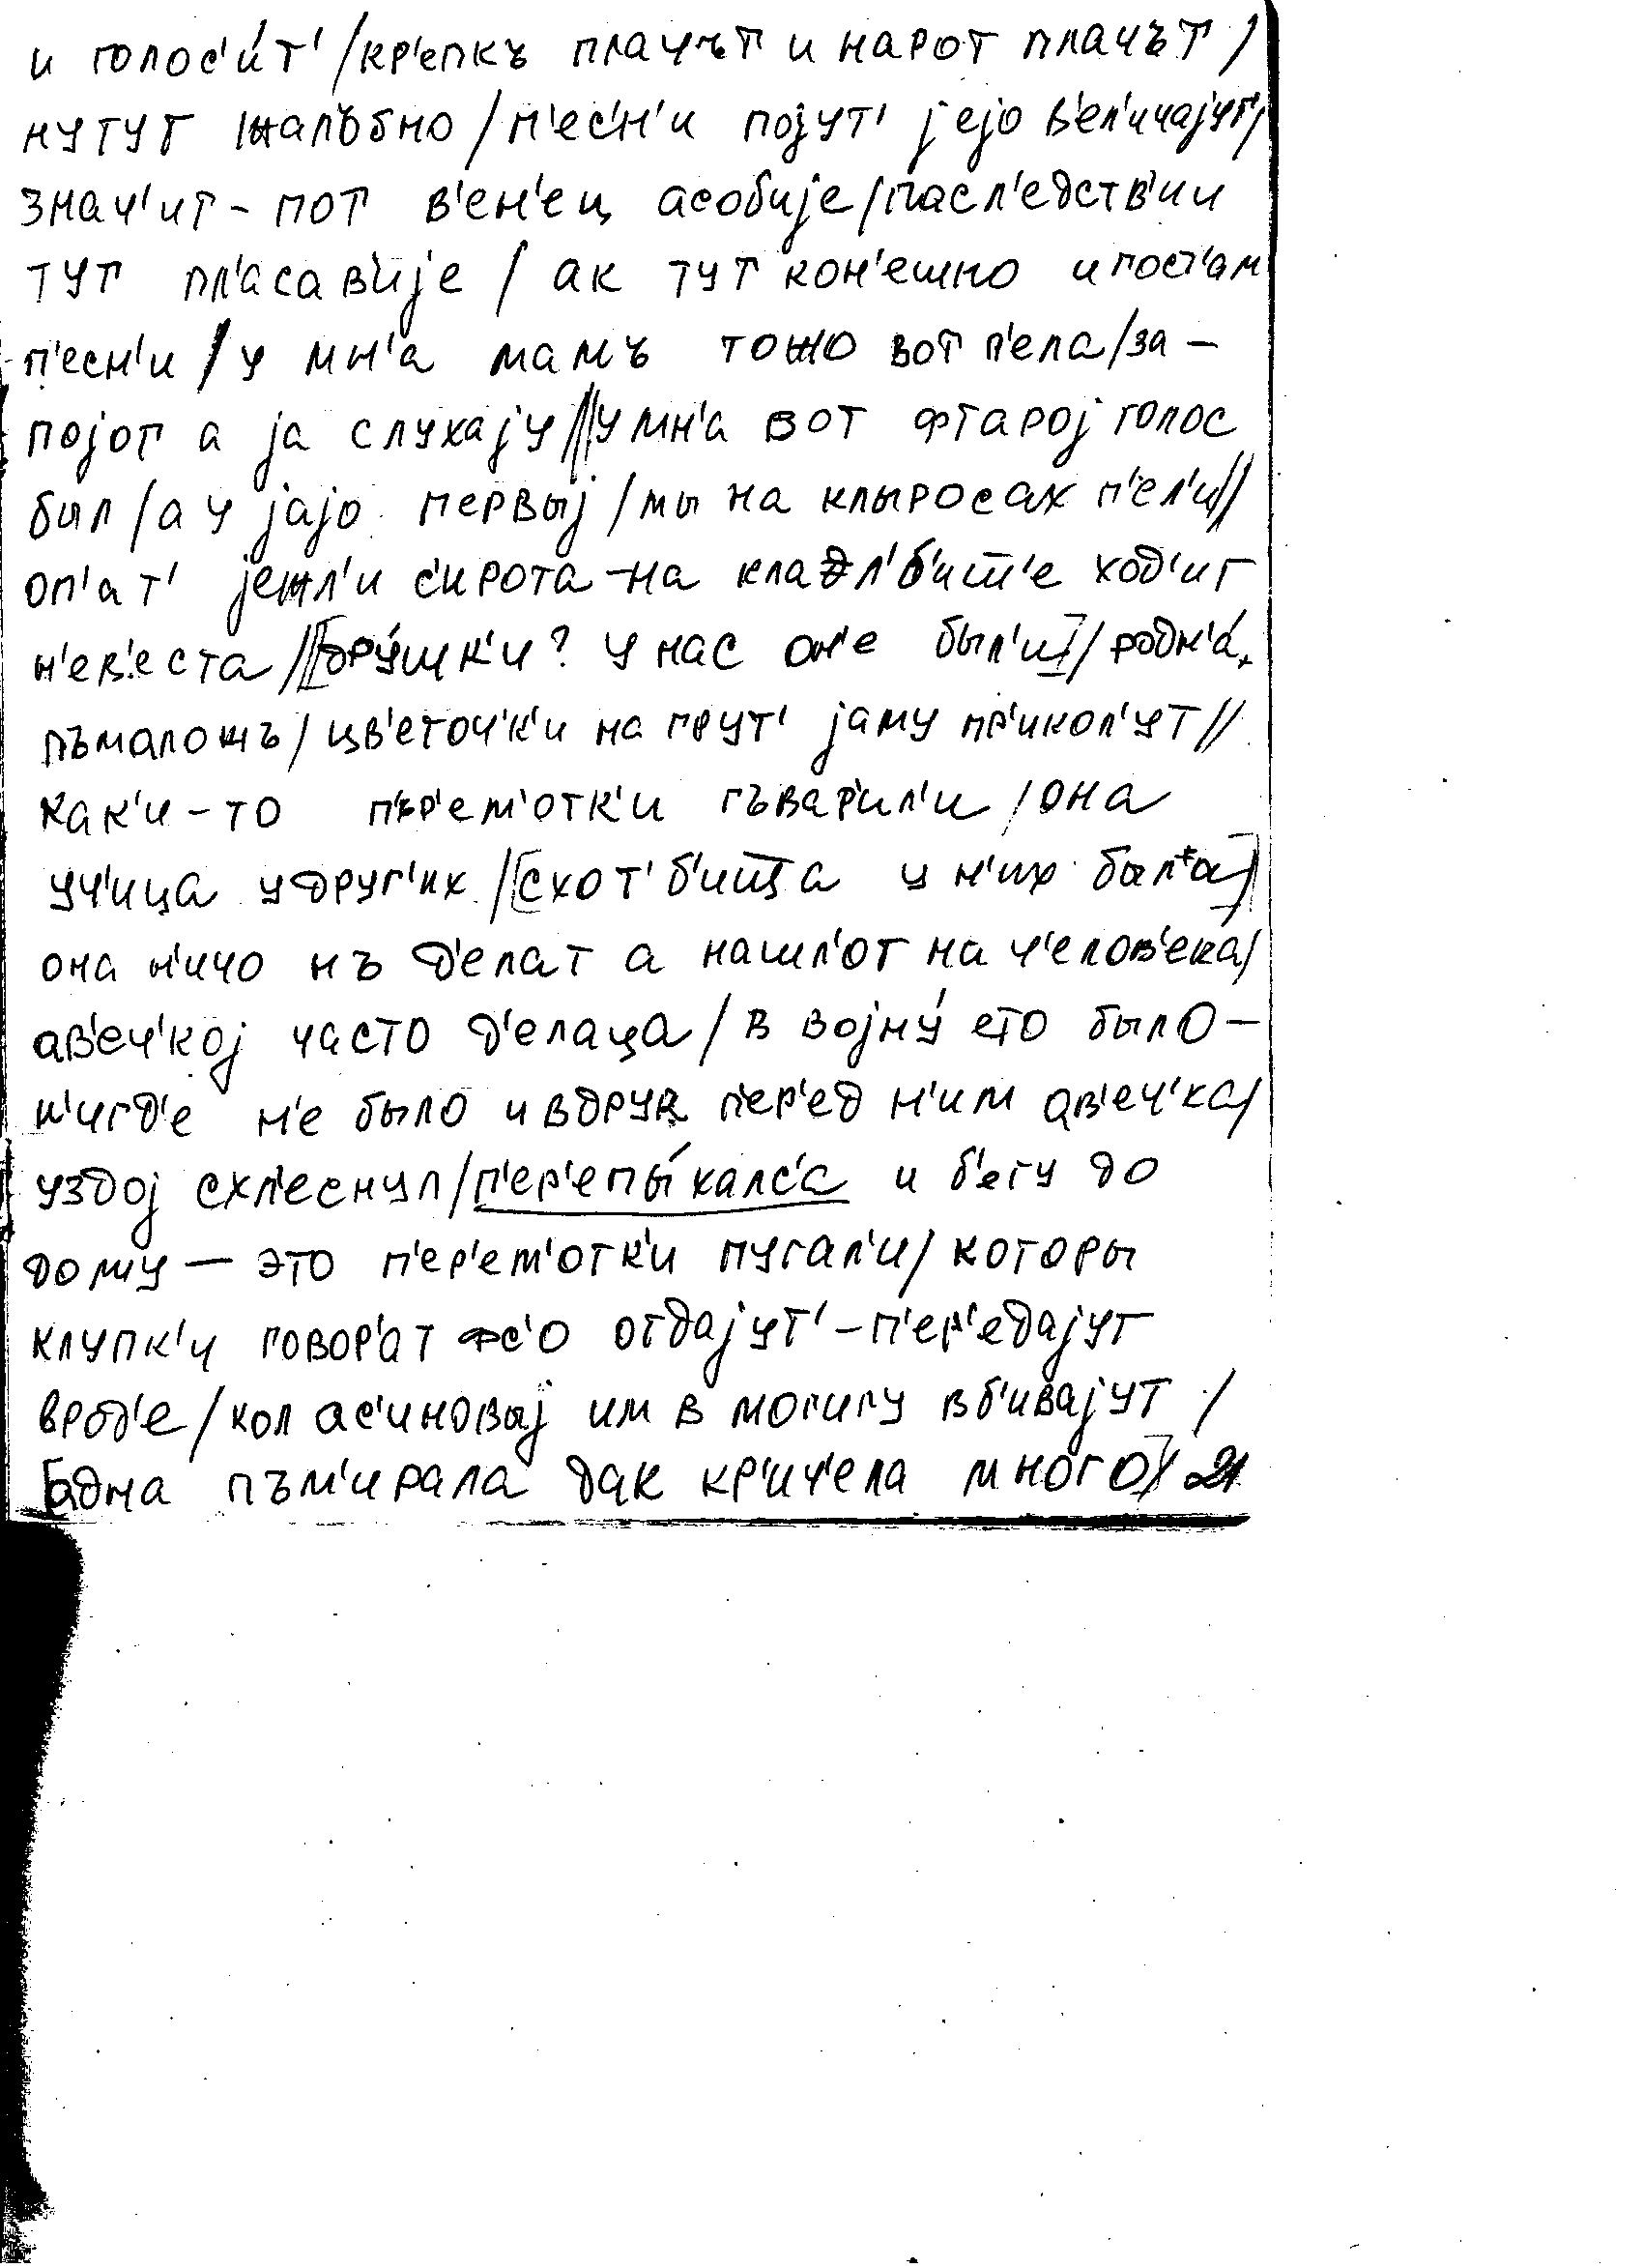 и голос'и́т' / кр'епкъ плачът и нарот плачът /
нутут жалъбно / п'ес'н'и појут' јејо в'ел'ичајут' /
знач'ит - пот в'ен'ец асобије / пасл'едств'ии
тут пл'асав'ије / ак тут кон'ешно и
п'есн'и / у мн'а мамъ тожо вот п'ела / за -
појот а ја слухају // у мн'а вот фтарој голос
был / а у јајо первыј / мы на клыросах п'ел'и //
оп'ат' јежл'и с'ирота - на ход'ит
н'ев'еста // [дру́шк'и? у нас он'е был'и] / родн'а́
пъмаложъ / цв'еточ'к'и на грут' јаму пр'икол'ут //
как'и - то п'ър'ем'отк'и гъвар'ил'и / она
уч'ица у друг'их / [схот'б'ища у н'их был'а]
она н'ичо нъ д'елат а нашл'от на ч'елов'ека /
ав'еч'кој часто д'елаца / в војну́ ето было -
н'игд'е н'е было и вдрук п'ер'ед н'им ав'еч'ка /
уздој схл'еснул / п'ер'епы́халс'а и б'егу до
дому — это п'ер'ем'отк'и пугал'и / которы
клупк'и говор'ат фс'о отдајут' - п'ер'едајут
врод'е / кол ас'иновыј им в могилу вб'ивајут /
[адна пъм'ирала дак кр'ич'ела много] / 21